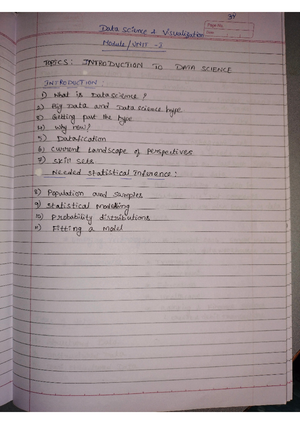 Data Science & Visualization
Module/Unit -1
TOPICS: INTRODUCTION TO DATA SCIENCE
INTRODUCTION:
1) What is Data Science?
2) Big Data and Data Science hype
3) Getting past the hype
4) Why now?
5) Datafication
6) Current Landscape of Perspectives
7) Skill Sets
Needed Statistical Inference:
8) Population and Samples
9) Statistical Modelling
10) Probability distributions
11) Fitting a Model